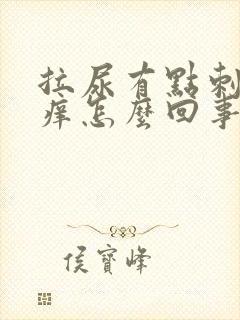 拉尿有點刺
癢怎麼回事
侯寶峰